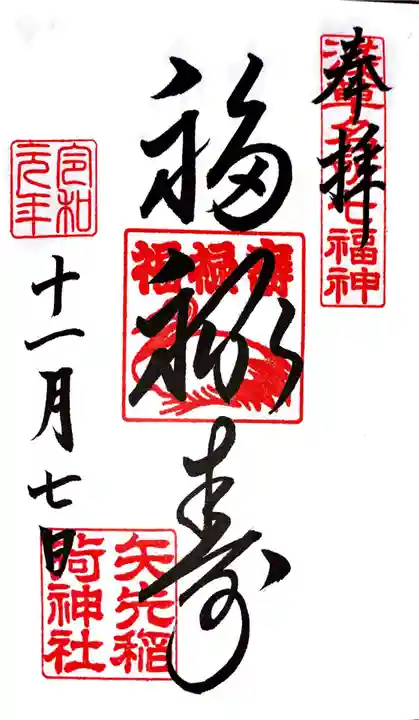 奉拝
浅草名所七福神
福禄寿
福禄寿
令和
元年
十一月七日
矢先稲
荷神社